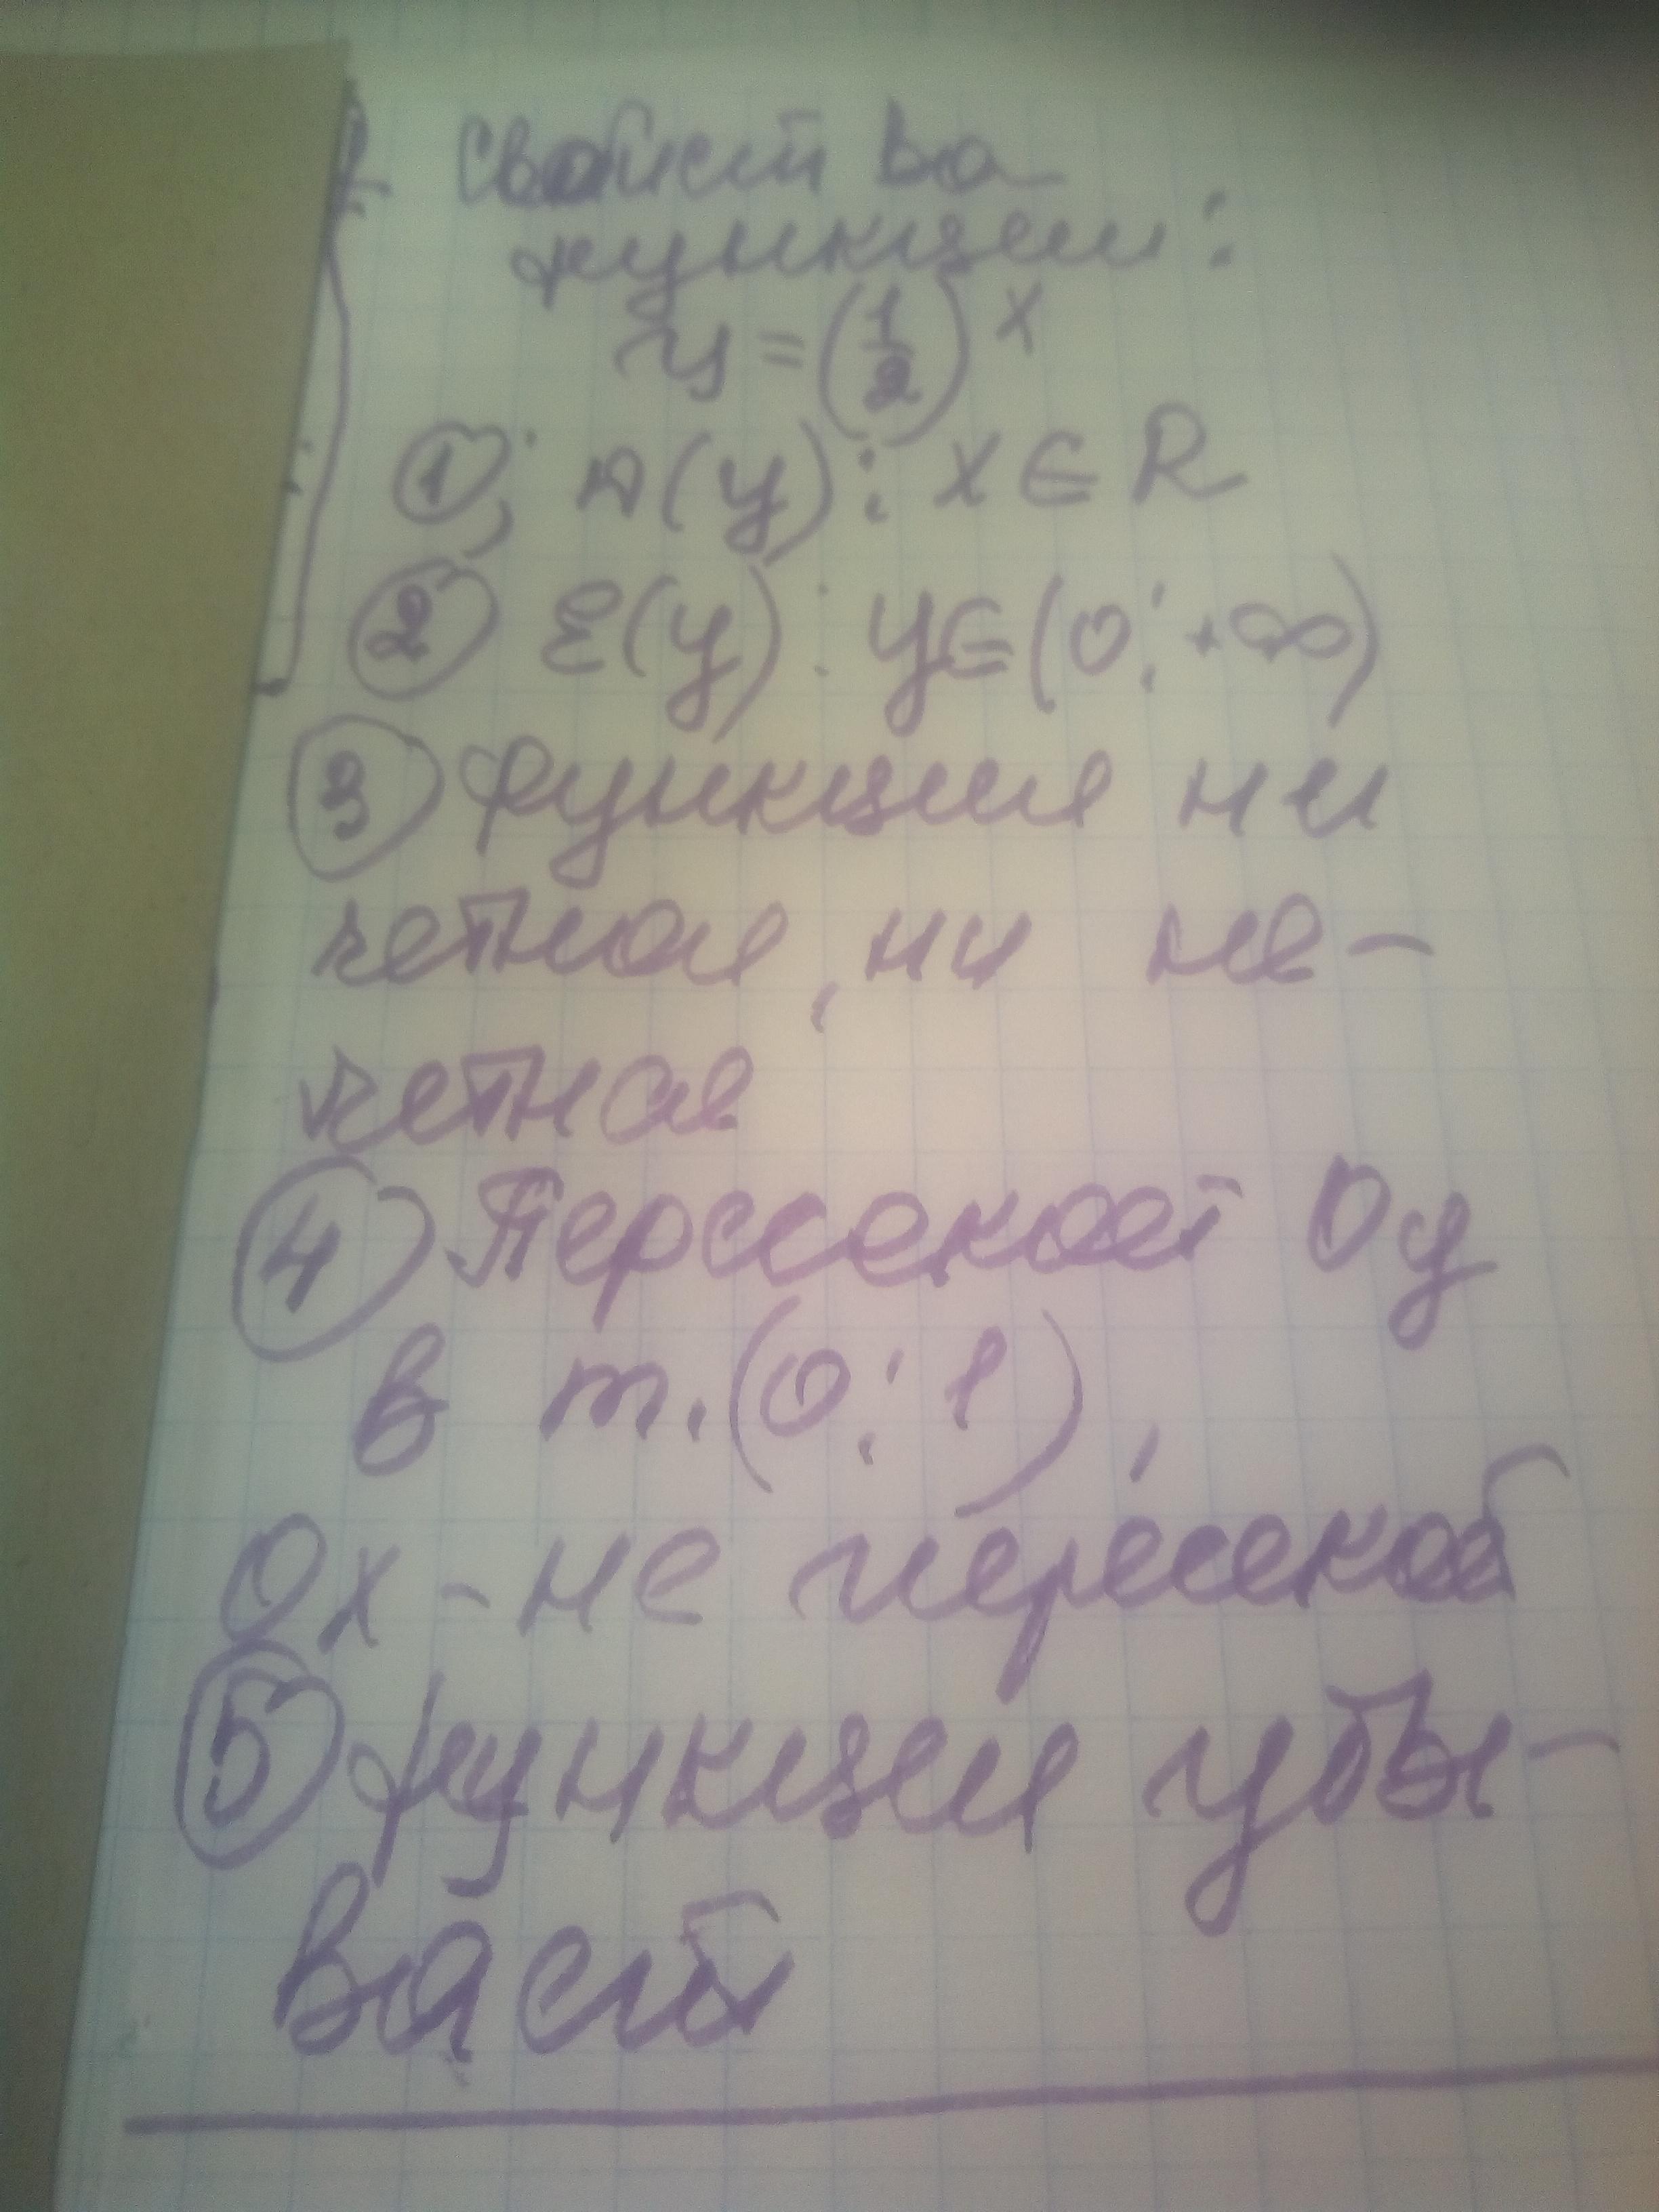 Свойства
функции:
y = (1/2)^x
① D(y): x ∈ R
② E(y): y ∈ (0; +∞)
③ Функция ни
четная, ни не-
четная
④ Перссекает Oy
в т. (0; 1),
Ox - не пересекает
⑤ функция убы-
вает